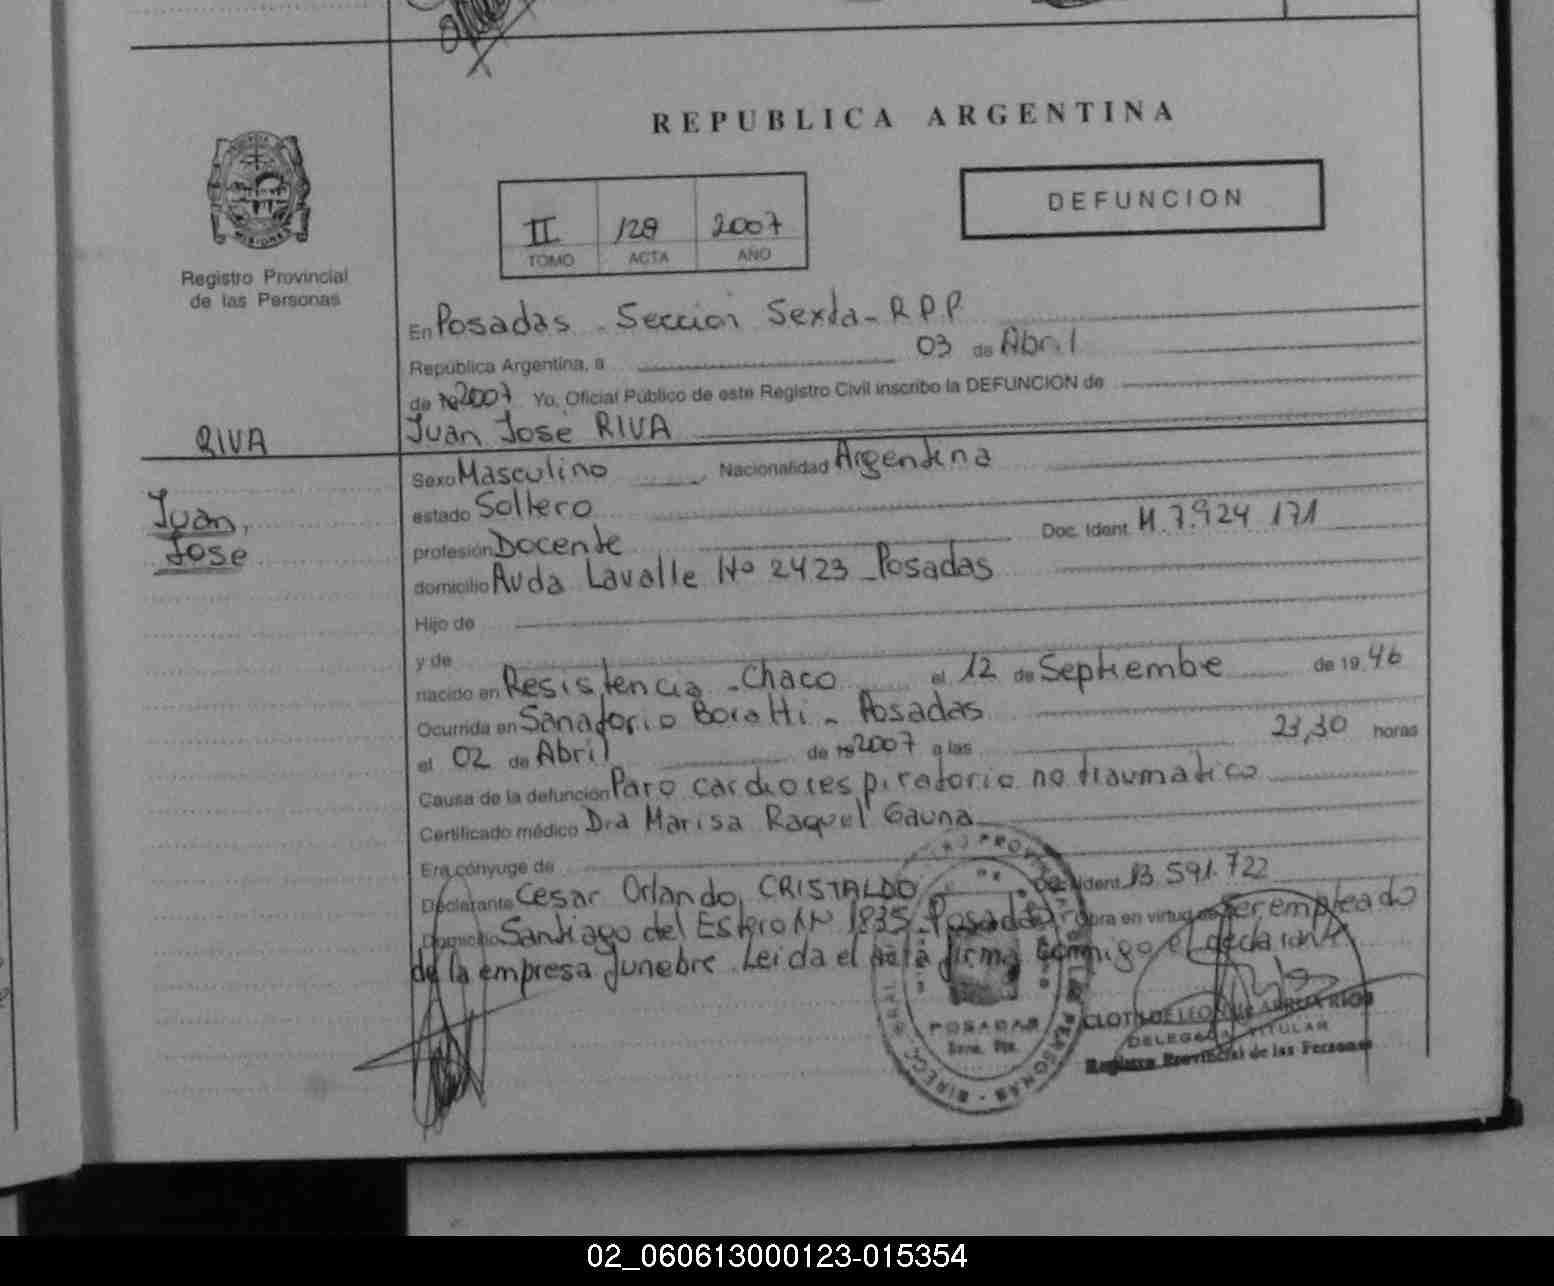 REPUBLICA ARGENTINA
DEFUNCION
II 129 2007
TOMO ACTA AÑO
Registro Provincial
de las Personas
En Posadas - Sección Sexta - R P P
República Argentina, a 03 de Abril
de 19 2007 Yo, Oficial Público de este Registro Civil inscribo la DEFUNCION de
RIVA
Juan Jose RIVA
Juan,
Jose
Sexo Masculino Nacionalidad Argentina
estado Soltero
profesión Docente Doc. Ident. M. 7.924 171
domicilio Avda Lavalle Nº 2423 - Posadas
Hijo de
y de
nacido en Resistencia - Chaco el 12 de Septiembe de 19 46
Ocurrida en Sanatorio Boratti - Posadas
el 02 de Abril de 19 2007 a las 23,30 horas
Causa de la defunción Paro cardiorespiratorio no traumatico
Certificado médico Dra Marisa Raquel Gauna
Era cónyuge de
Declarante Cesar Orlando CRISTALDO Doc. Ident. 13.591.722
Domicilio Santiago del Estero Nº 1835 - Posadas Obra en virtud de ser empleado
de la empresa funebre. Leida el Acta firma conmigo el declarante
POSADAS
DELEGADA TITULAR
Registro Provincial de las Personas
02_060613000123-015354